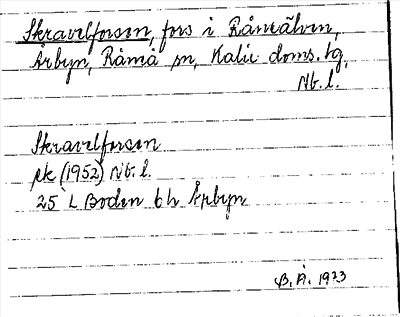 Skravelforsen, fors i Råneälven,
Årbyn, Råneå sn, Kalix doms. tg,
Nb. l.
Skravelforsen
ek (1952) Nb. l.
25 L Boden 6h Årbyn
B. Å. 1973